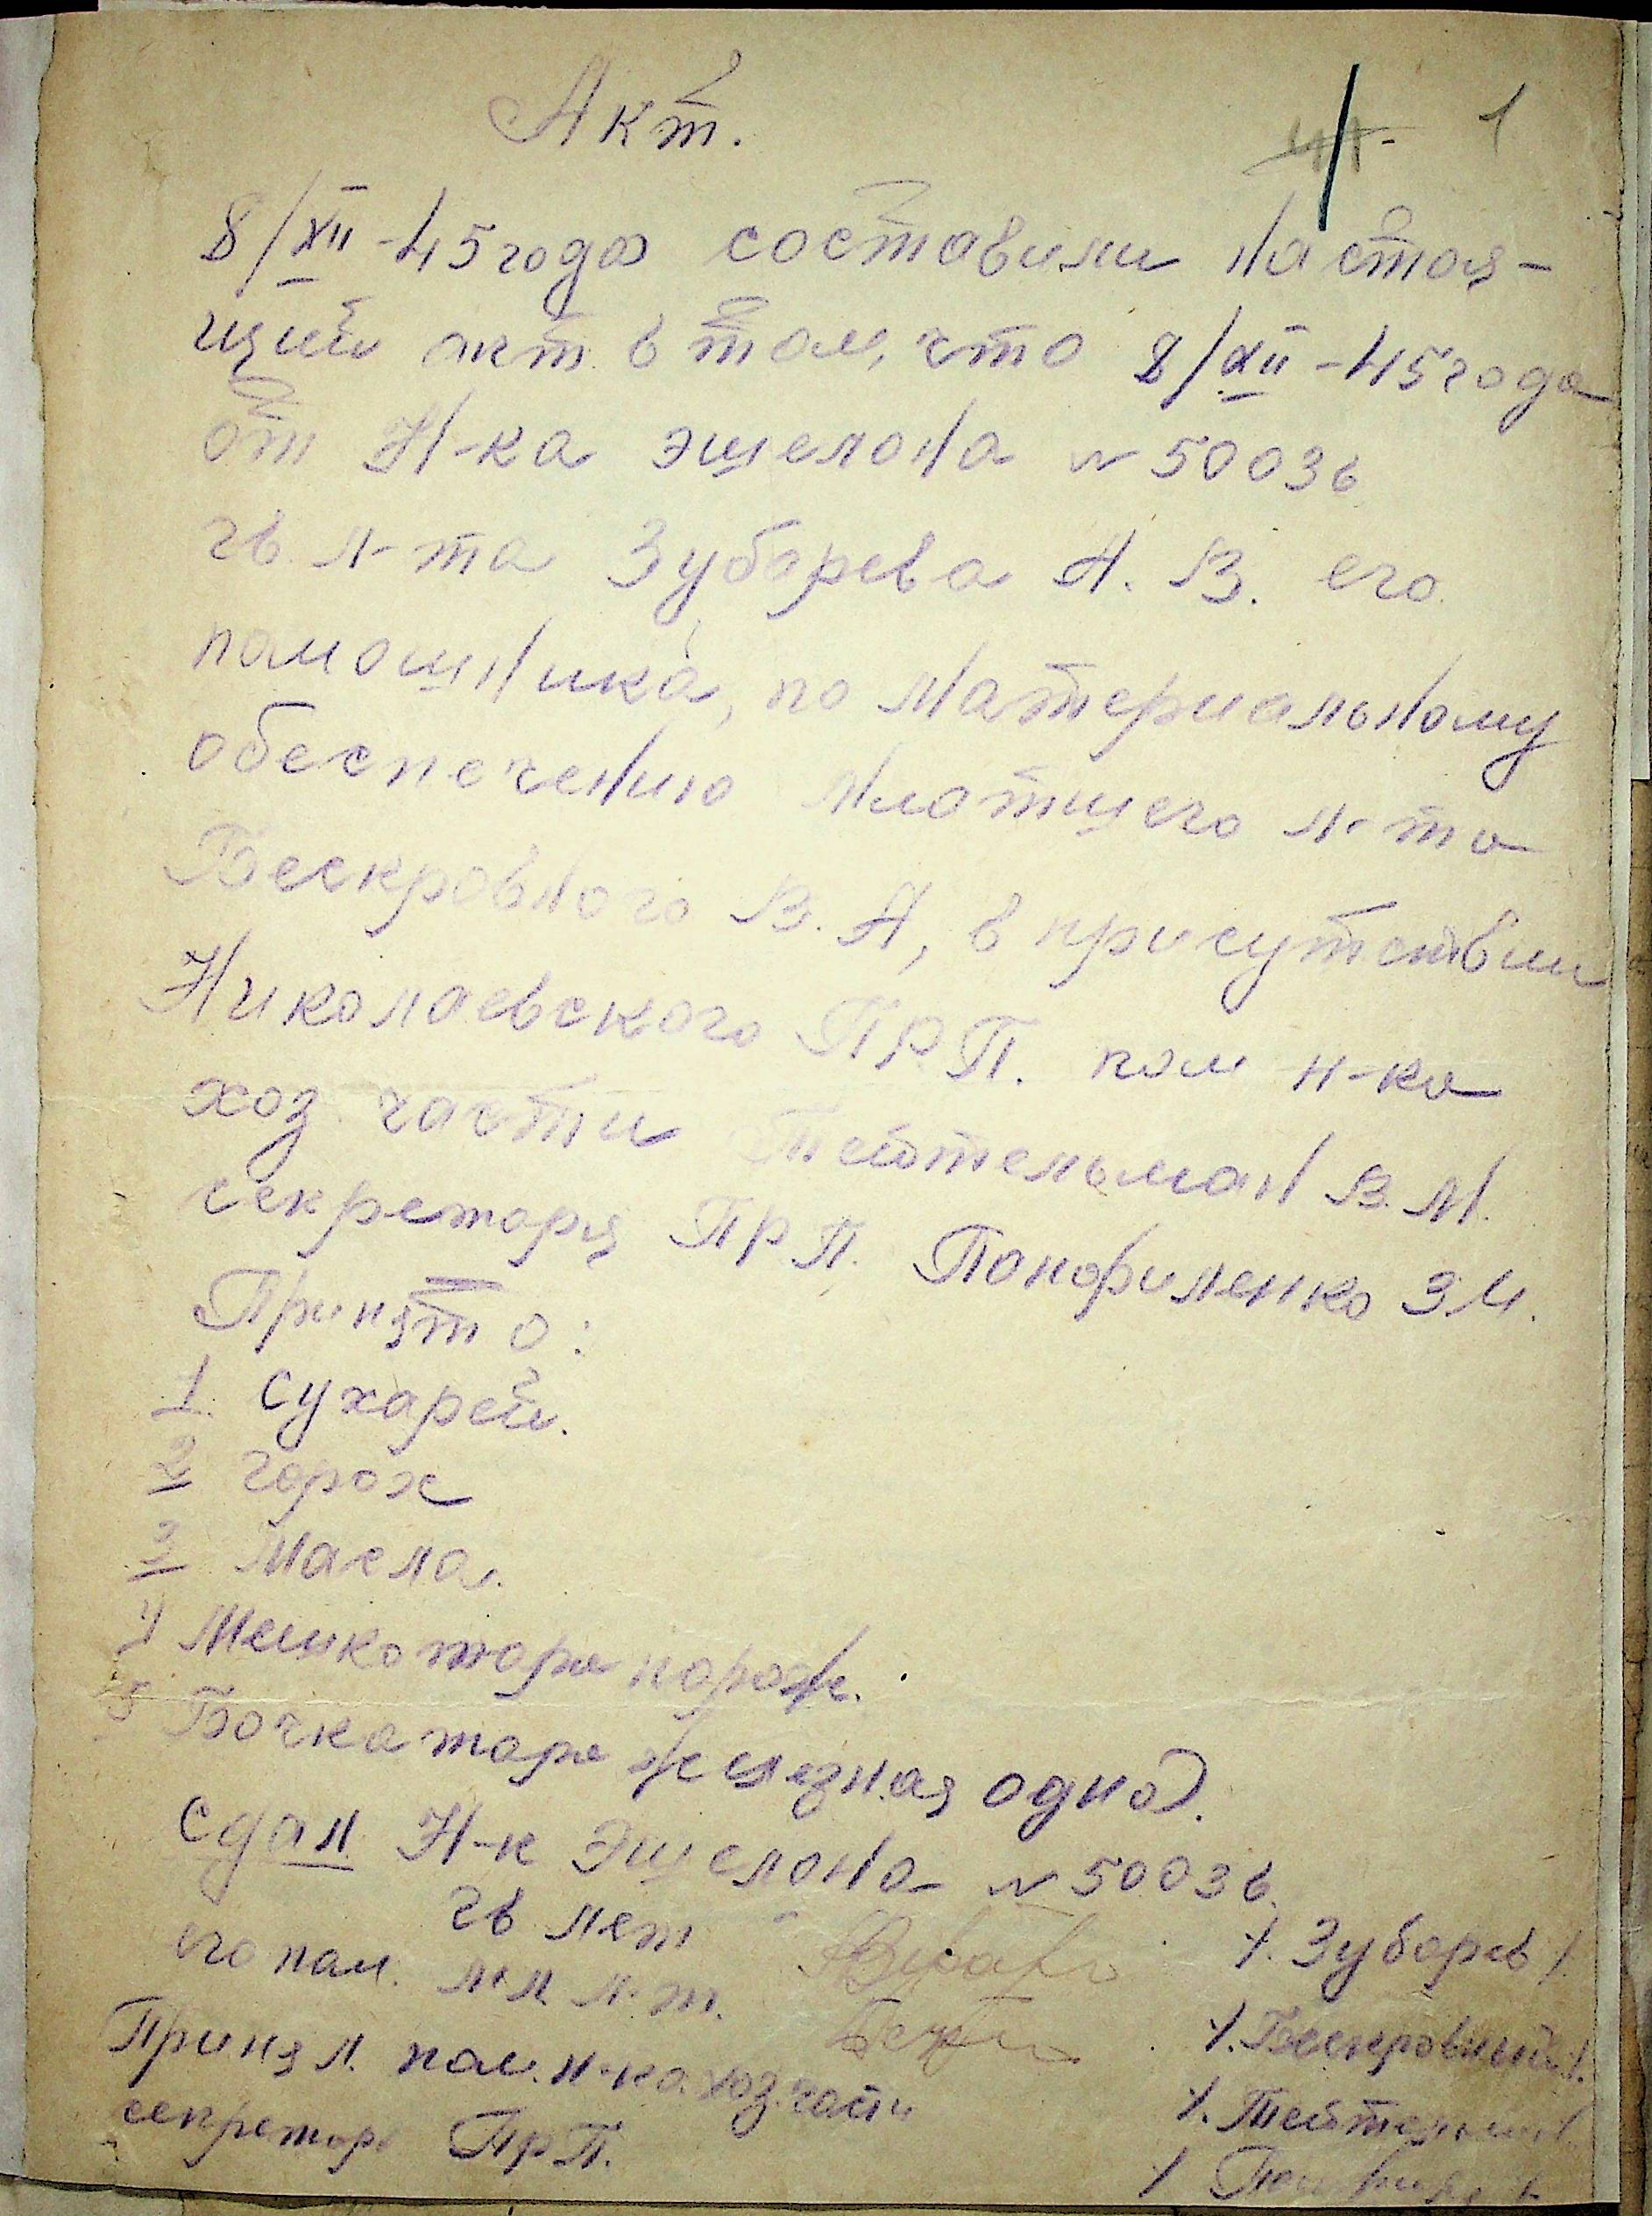 Акт.
1
8/XII-45 года составили настоя-
щий акт в том, что 8/XII-45 года
от Н-ка эшелона № 50036
гв. л-та Зубарева А. В. его
помощника, по материальному
обеспечению млатшего л-та
Бескровного В. А, в присутствии
Николаевского ПРП. пом н-ка
хоз части Тейтельман В. М.
секретаря ПРП. Панфиленко З И.
Принято:
1. Сухарей.
2 горох
3 Масла.
4 Мешко тара порож.
5 Бочка тара железная одна.
Сдал Н-к Эшелона № 50036
гв лет /. Зубарев /.
его пом. мл. л-т. /. Бескровный /.
Принял. пом. н-ка хоз. части /. Тейтельман /.
секретарь ПРП. /